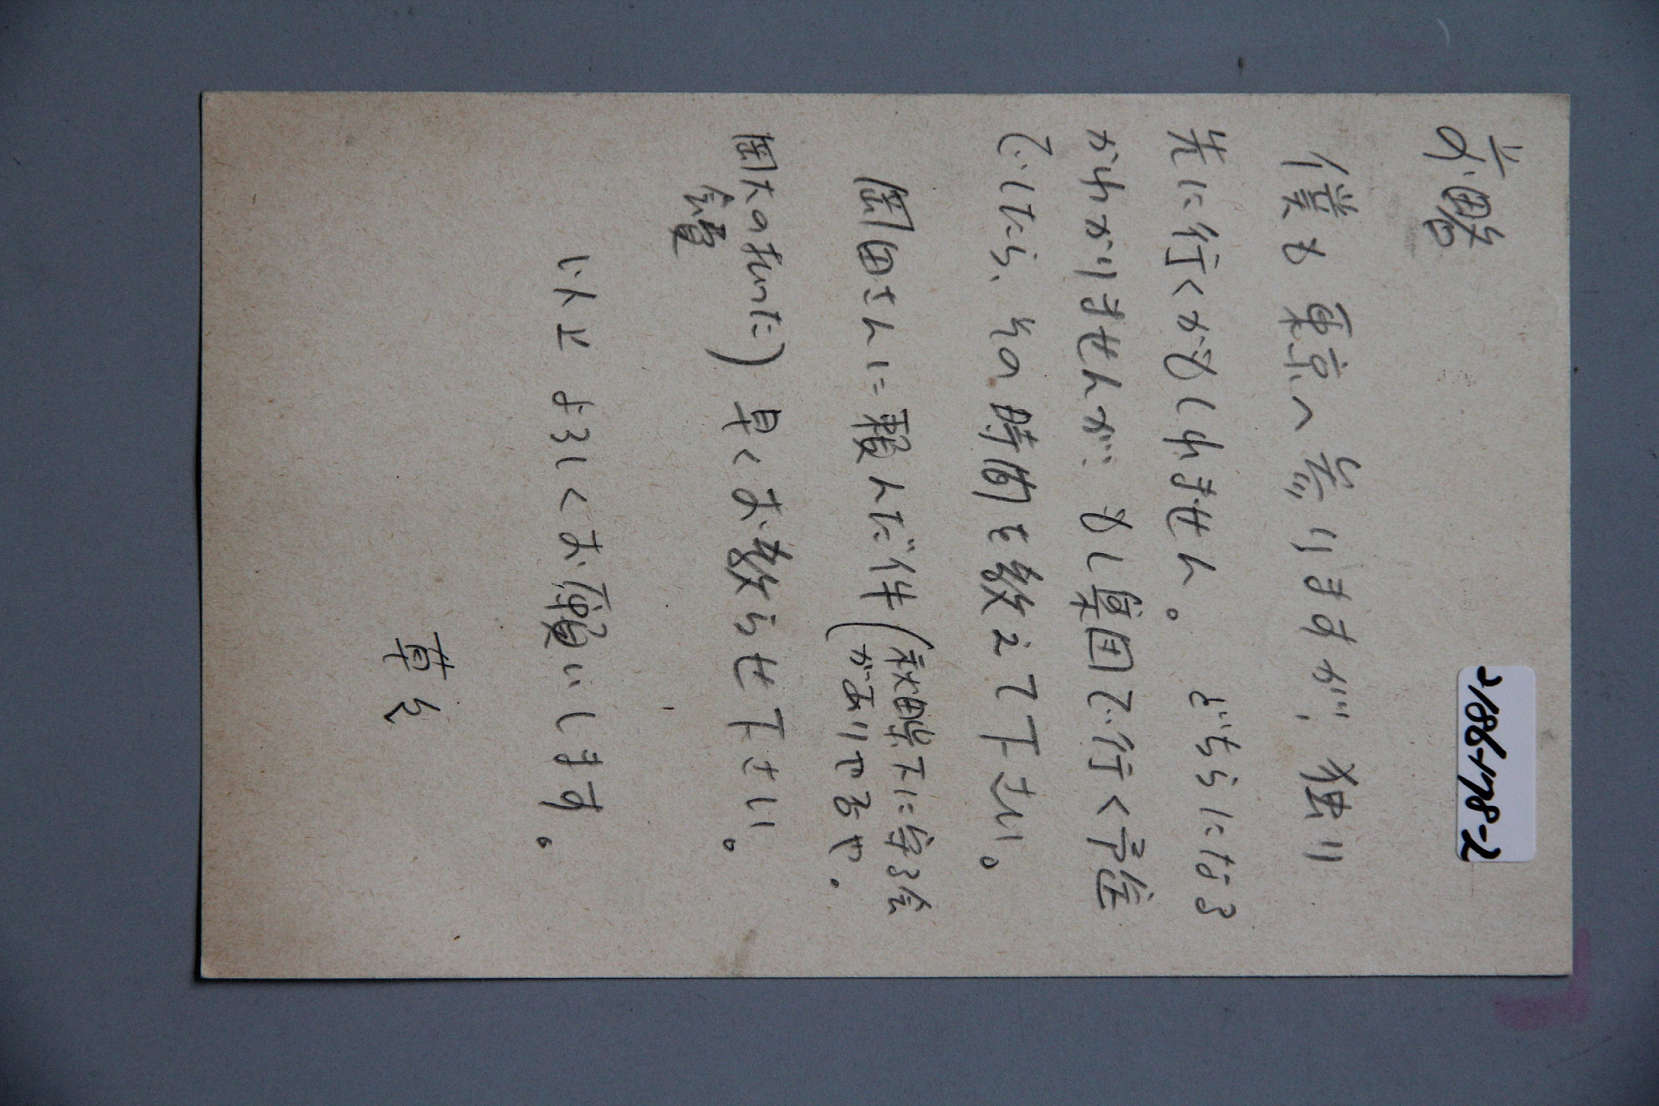 前略
僕も東京へ参りますが、独り
先に行くかもしれません。どちらになる
かわかりませんが、もし集団で行く予定
でしたら、その時間を教えて下さい。
岡田さんに頼んだ件(秋田県下に
がありや否や。
会費
早くお知らせ下さい。
以上よろしくお願いします。
草々
2186-178-2